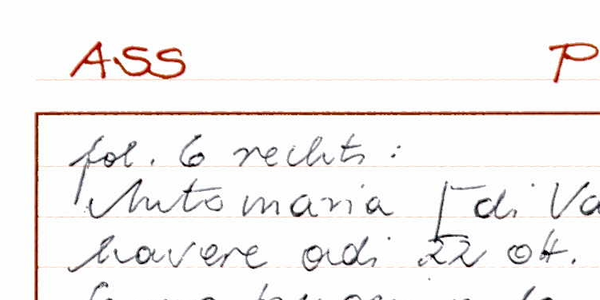 ASS P
fol. 6 rechts:
Antomaria [di Va
havere adi 22 ott.